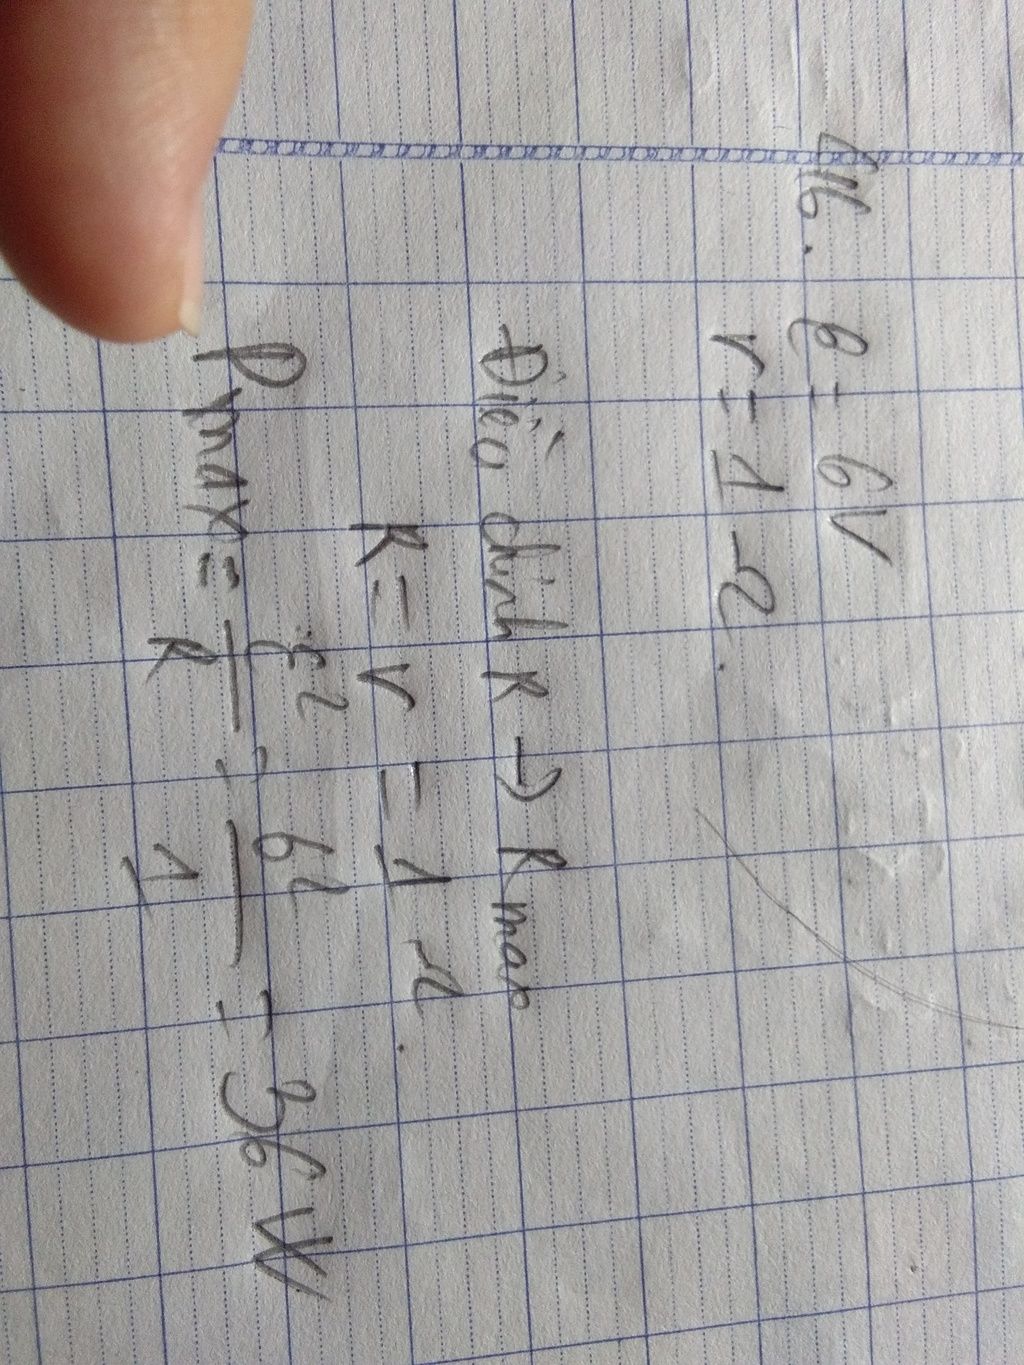 C16. e = 6V
r = 1 Ω.
Điều chỉnh R → R max
R = r = 1 Ω.
P max = ξ² / R = 6² / 1 = 36 W